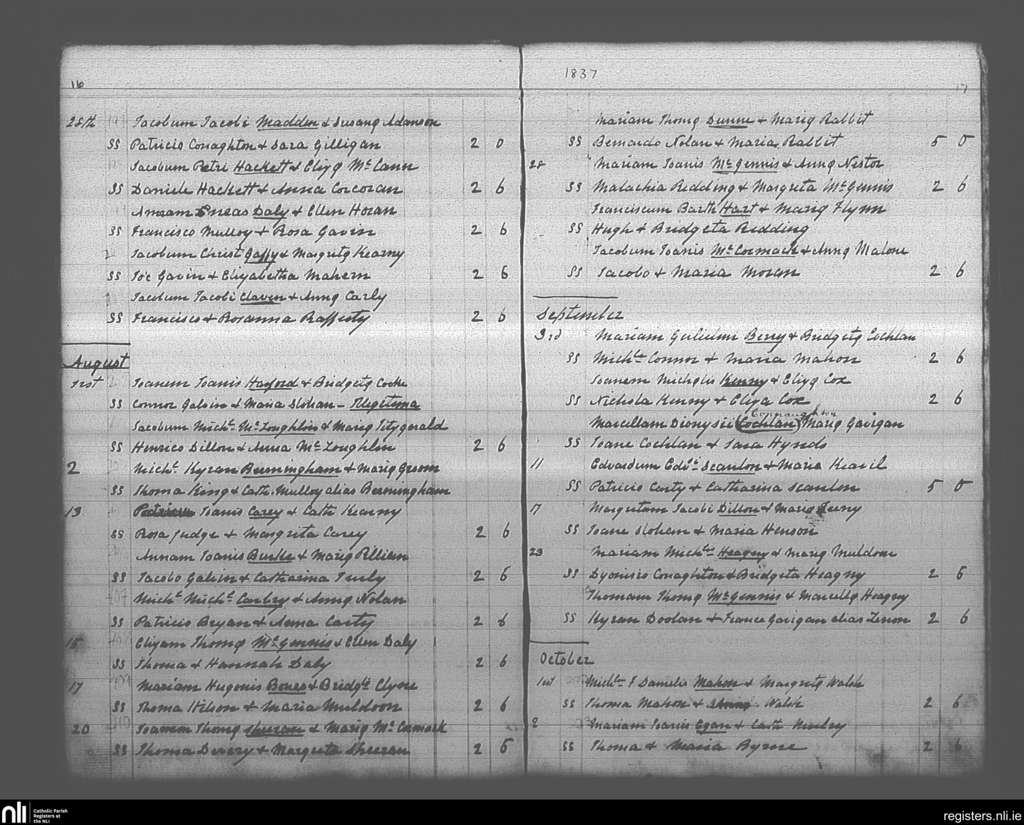 16
28th Jacobum Jacobi Madden & Susang Adamson
SS Patricio Conaghton & Sara Gilligan 2 0
Jacobum Petri Hackett & Elizg McCann
SS Daniele Hackett & Anna Corcoran 2 6
Annam Eneas Daly & Ellen Horan
SS Francisco Mulloy & Rosa Gavin 2 6
Jacobum Christ Gaffy & Margritg Kearny
SS Joe Gavin & Elizabetha Mahern 2 6
Jacobum Jacobi Claven & Anng Carly
SS Francisco & Rosanna Rafferty 2 6
August
1rst Joanem Joanis Haxford & Bridgetg Cocke
SS Connor Galvin & Maria Slohan - Illegitema
Jacobum Michl. McLoughlin & Marig Fitzgerald
SS Henrico Dillon & Anna McLoughlin 2 6
2 Michl. Kyran Bermingham & Marig Green
SS Thoma King & Cath. Mulloy alias Bermingham
13 Joanis Carey & Cath Kearny
SS Rosa Judge & Margrita Carey 2 6
Annam Joanis Burke & Marig Killian
SS Jacobo Galvin & Catharina Scully 2 6
Michl. Michl. Conboy & Anng Nolan
SS Patricio Bryan & Anna Carty 2 6
15 Elizam Thomg McGennis & Ellen Daly
SS Thoma & Hannah Daly 2 6
17 Mariam Hugonis Bones & Bridgt. Clyne
SS Thoma Hilson & Maria Muldoon 2 6
20 Joannem Thomg Sheeran & Marig McCormack
SS Thoma Devery & Margreta Sheeran 2 6
1837
17
Mariam Thomg Dunne & Marig Rabbit
SS Bernardo Nolan & Maria Rabbit 5 0
28 Mariam Joanis McGennis & Anng Nestor
SS Malachia Redding & Margreta McGennis 2 6
Franciscum Barth Hart & Marig Flynn
SS Hugh & Bridgeta Redding
Jacobum Joanis McCormack & Anng Malone
SS Jacobo & Maria Moran 2 6
September
3rd Mariam Gulielmi Berry & Bridgetg Cochlan
SS Michl. Connor & Maria Mahon 2 6
Joanem Michalis Kenny & Elizg Cox
SS Nichola Kenny & Eliza Cox 2 6
Connaughton
Marcellam Dionysii (Cochlan) Marig Gavigan
SS Joane Cochlan & Sara Hynds
11 Edvardum Eddi. Scanlon & Maria Keavil
SS Patricio Carty & Catharina Scanlon 5 0
17 Margretam Jacobi Dillon & Marig
SS Joane Slohem & Maria Henson
23 Mariam Michls. Heagny & Marig Muldoon
SS Dyonisio Conaghton & Bridgeta Heagny 2 6
Thomam Thomg McGennis & Marcellg Heagny
SS Kyran Doolan & France Gavigan alias 2 6
October
1st Michl. & Danielis Mahon & Margretg Walsh
SS Thoma Mahon & Walsh 2 6
2 Mariam Joanis Egan & Cath
SS Thoma & Maria Byrne 2 6
nli Catholic Parish Registers at the NLI
registers.nli.ie